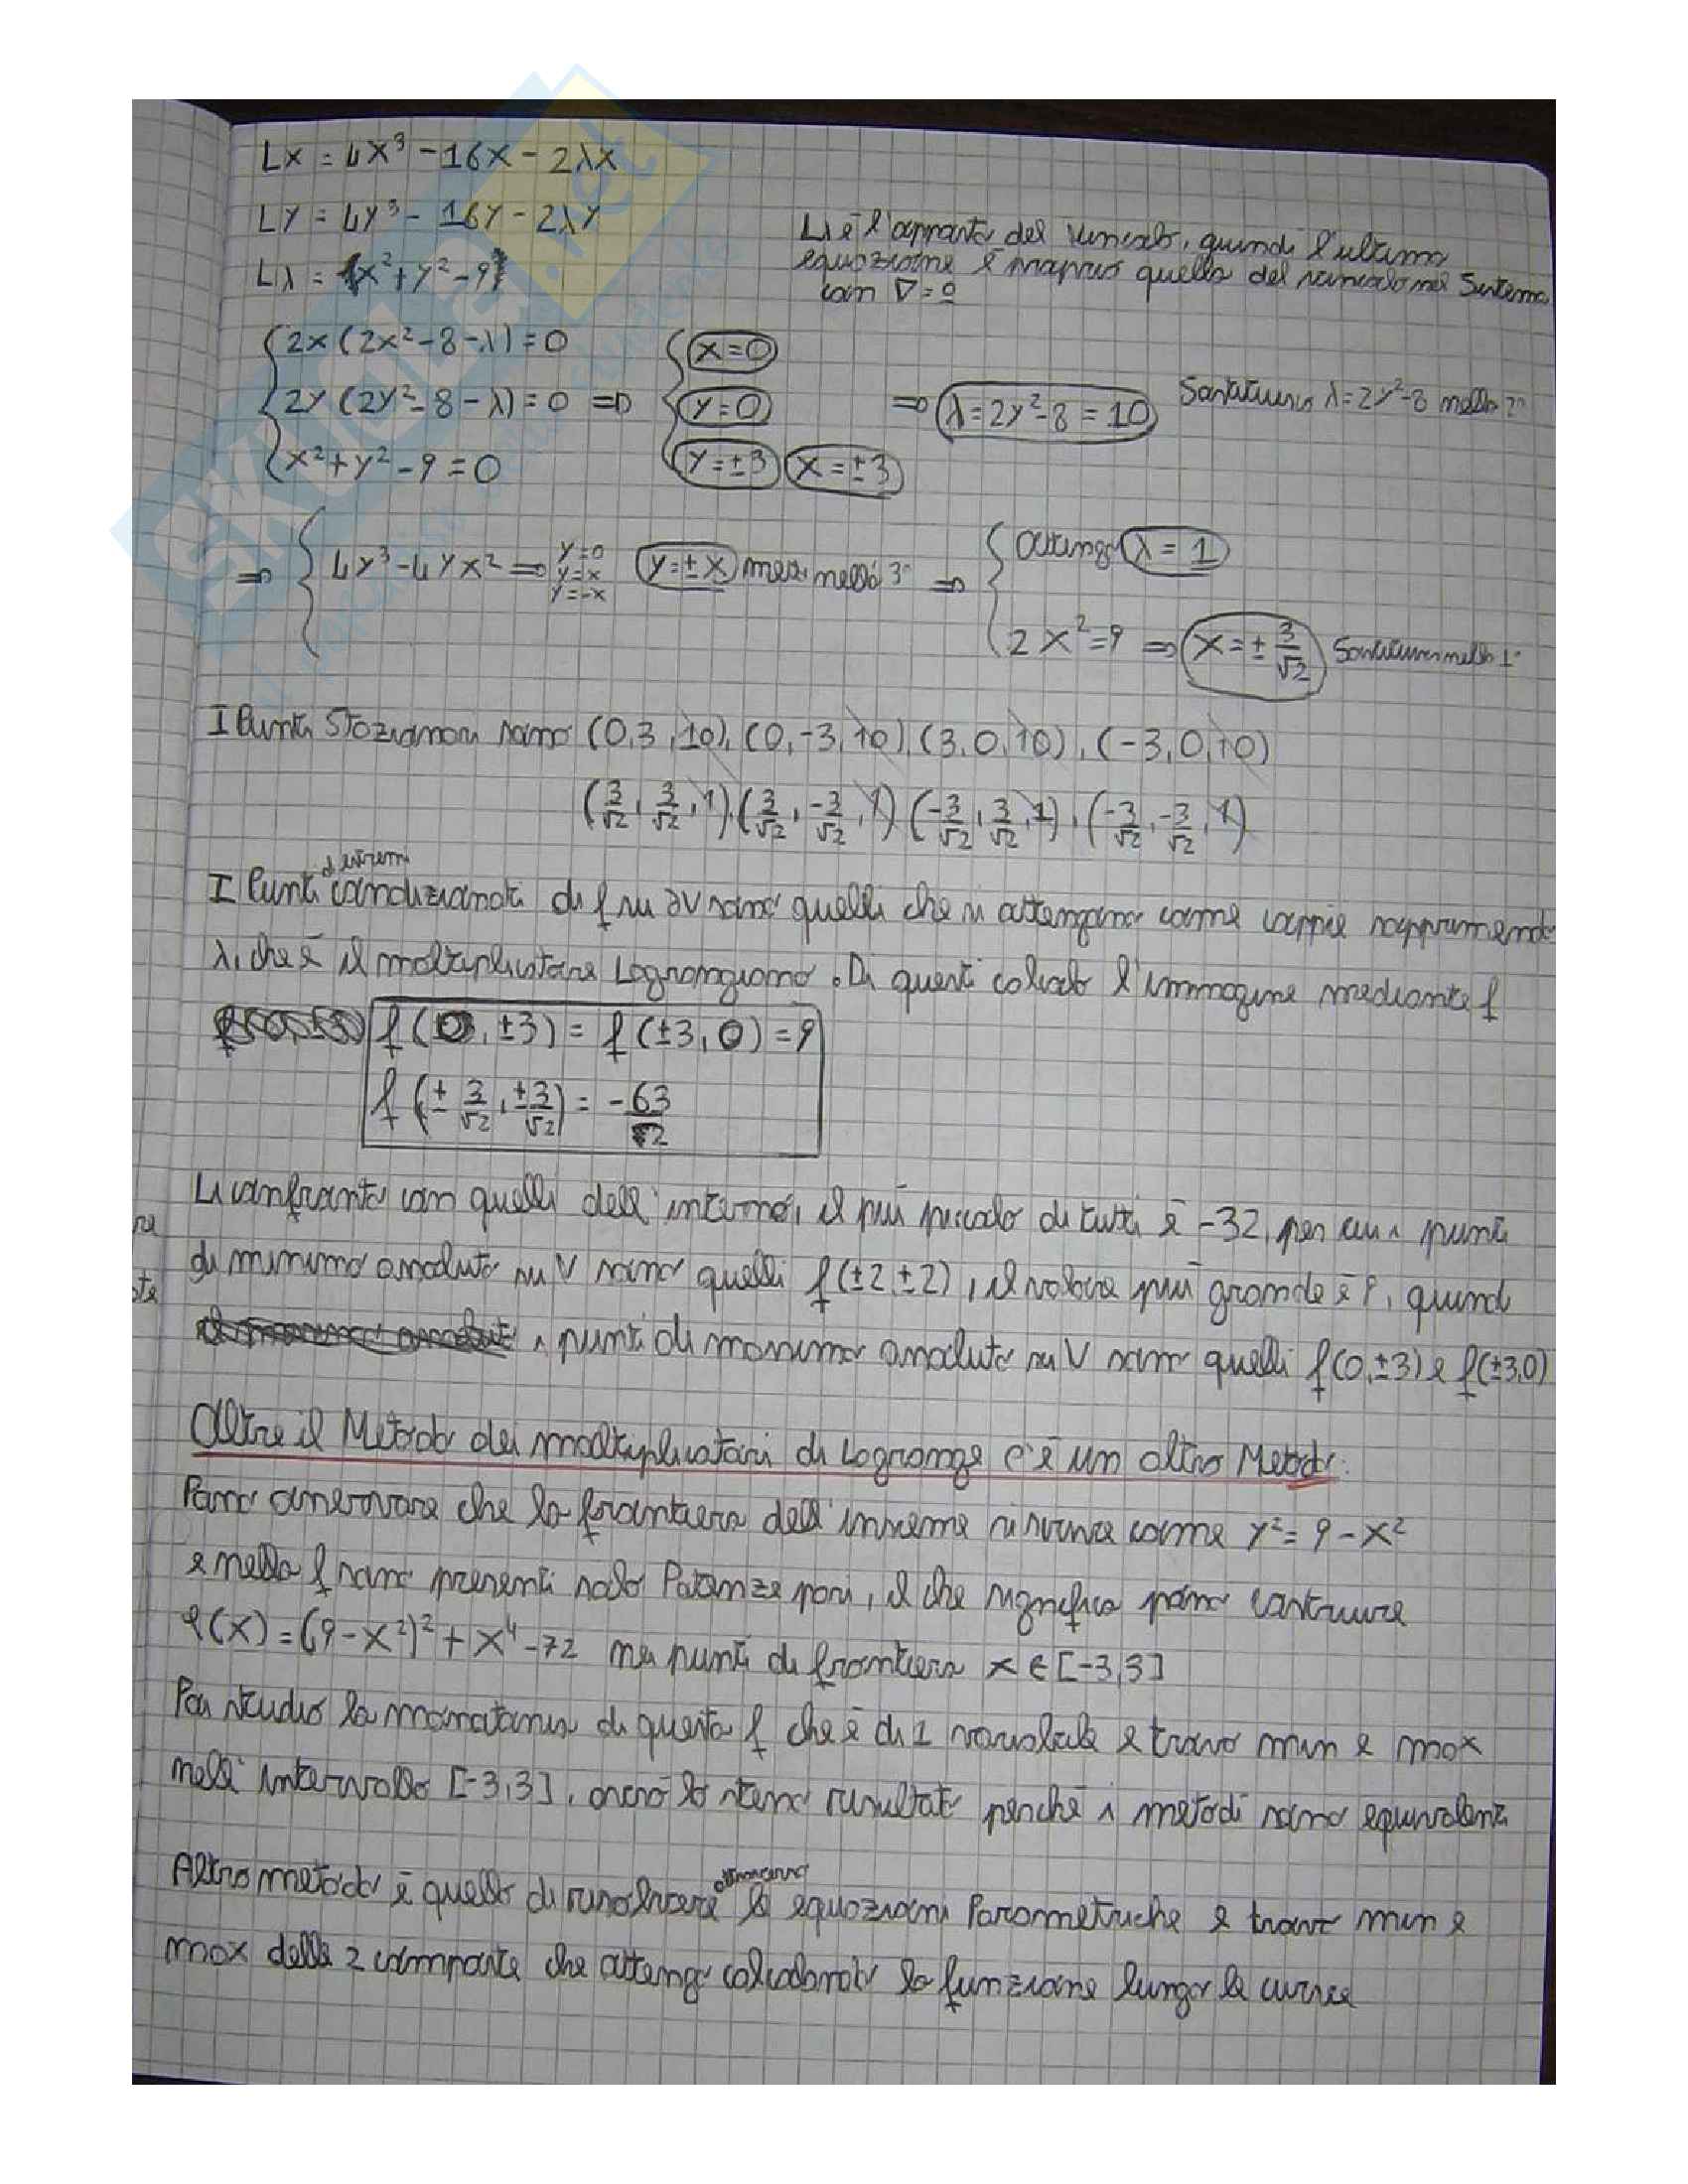 Lx = 4x³ - 16x - 2λx
Ly = 4y³ - 16y - 2λy
Lλ = (x² + y² - 9)
Lλ è l'opposto del vincolo, quindi l'ultima
equazione è proprio quella del vincolo nel sistema
con ∇ = 0
{ 2x (2x² - 8 - λ) = 0
{ 2y (2y² - 8 - λ) = 0 ⇒ { x = 0 y = 0 y = ±3 x = ±3 ⇒ λ = 2y² - 8 = 10 Sostituisco λ = 2y² - 8 nella 2ª
{ x² + y² - 9 = 0
⇒ { 4y³ - 4yx² ⇒ y=0 y=x y=-x y = ± x messi nella 3ª ⇒ { ottengo λ = 1
2x² = 9 ⇒ x = ± 3/√2 Sostituisco nella 1ª
I Punti Stazionari sono (0, 3, 10), (0, -3, 10), (3, 0, 10), (-3, 0, 10)
(3/√2, 3/√2, 1), (3/√2, -3/√2, 1) (-3/√2, 3/√2, 1), (-3/√2, -3/√2, 1)
I Punti d'estremo condizionati di f su ∂V sono quelli che si ottengono come coppie sopprimendo
λ, che è il moltiplicatore Lagrangiano. Di questi calcolo l'immagine mediante f
f(0, ±3) = f(±3, 0) = 9
f(± 3/√2, ±3/√2) = -63/2
Li confronto con quelli dell'interno, il più piccolo di tutti è -32, per cui i punti
di minimo assoluto su V sono quelli f(±2 ±2), il valore più grande è 9, quindi
i punti di massimo assoluto su V sono quelli f(0, ±3) e f(±3,0)
re
ote
Oltre il Metodo dei moltiplicatori di Lagrange c'è un altro Metodo:
Posso osservare che la frontiera dell'insieme si scrive come y² = 9 - x²
e nella f sono presenti solo Potenze pari, il che significa posso costruire
φ(x) = (9 - x²)² + x⁴ - 72 nei punti di frontiera x ∈ [-3, 3]
Poi studio la monotonia di questa f che è di 1 variabile e trovo min e max
nell'intervallo [-3, 3], avrò lo stesso risultato perché i metodi sono equivalenti
Altro metodo è quello di risolvere attraverso le equazioni Parametriche e trovo min e
max della 2 composta che ottengo calcolando la funzione lungo la curva
SKUOLA.net